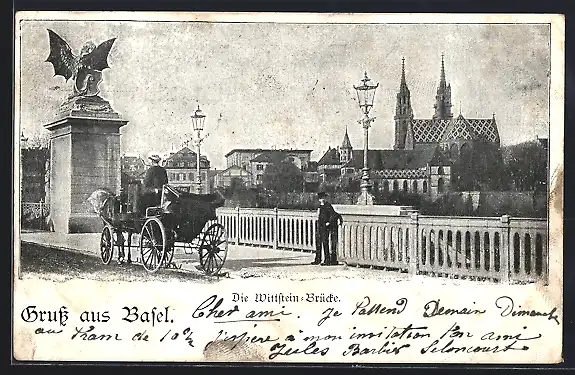 Die Wittstein-Brücke.
Gruß aus Basel.
Cher ami. Je t'attend Demain Dimanche
au Tram de 10 h j'espère à mon invitation ton ami
Jules Barbier Seloncourt